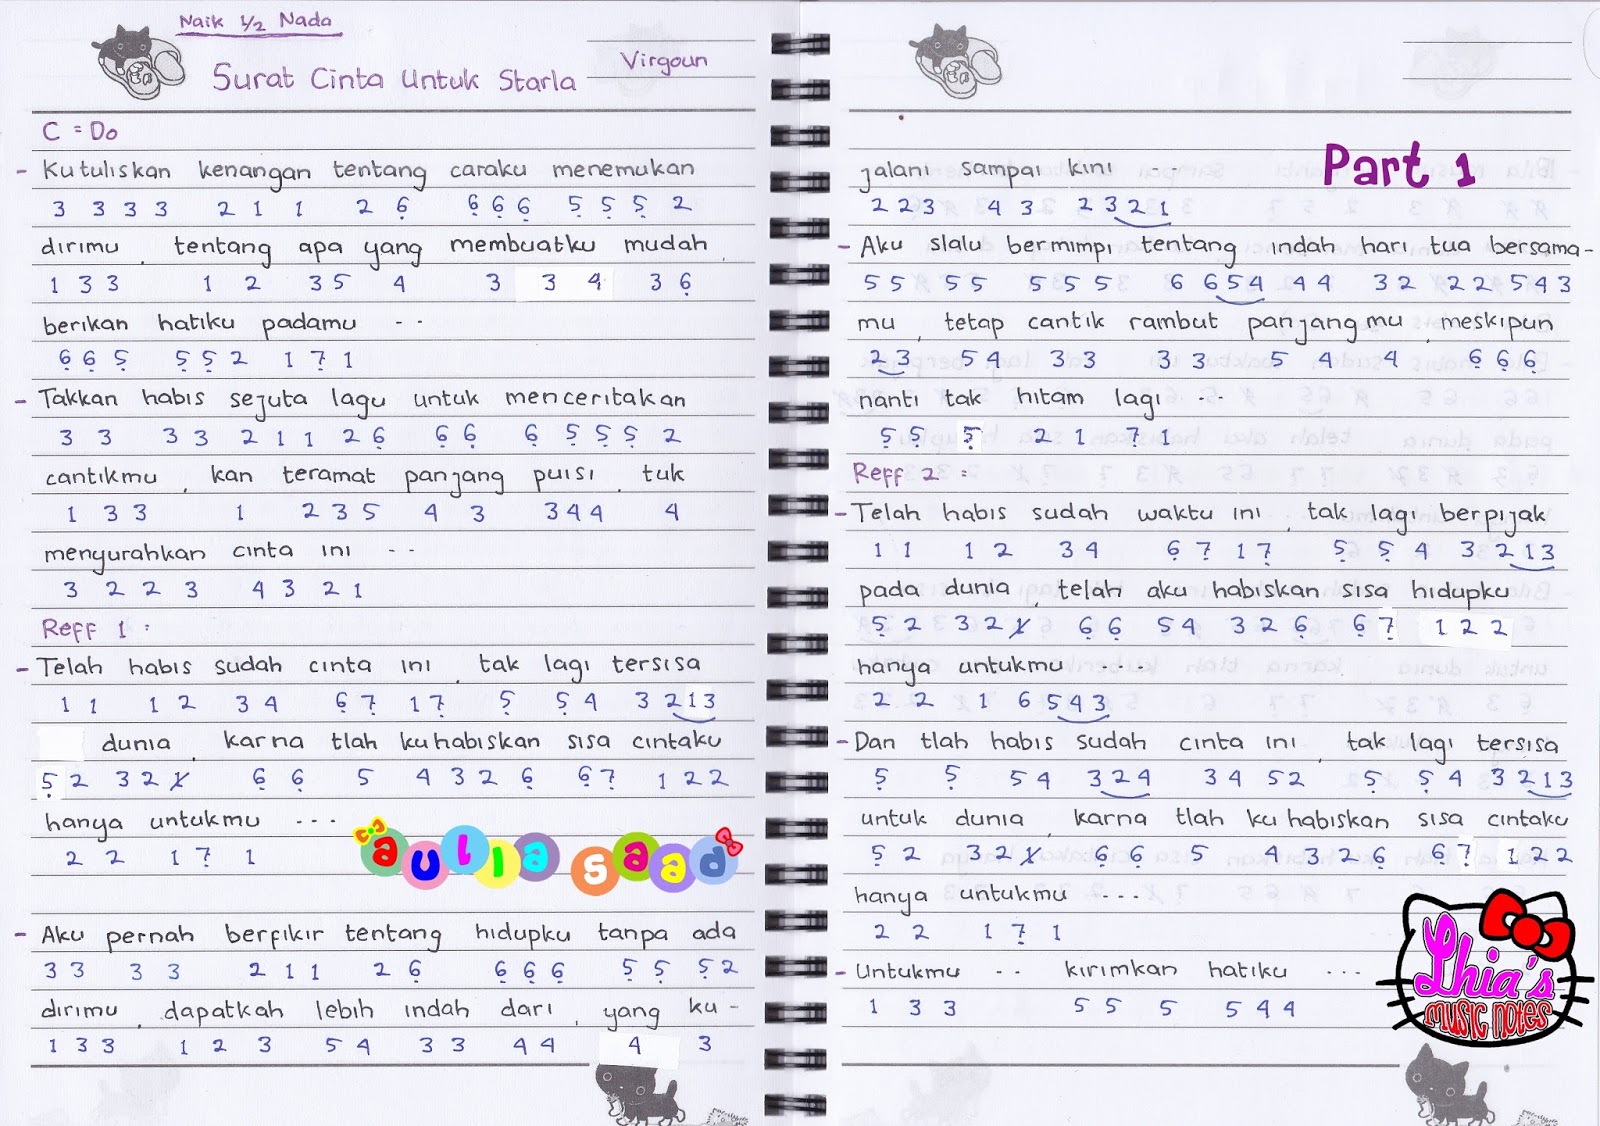 Naik 1/2 Nada
Surat Cinta Untuk Starla
Virgoun
C = Do
- Kutuliskan kenangan tentang caraku menemukan
3 3 3 3 2 1 1 2 6̣ 6̣ 6̣ 6̣ 5̣ 5̣ 5̣ 2
dirimu, tentang apa yang membuatku mudah,
1 3 3 1 2 3 5 4 3 3 4 3 6̣
berikan hatiku padamu - -
6̣ 6̣ 5̣ 5̣ 5̣ 2 1 7̣ 1
- Takkan habis sejuta lagu untuk menceritakan
3 3 3 3 2 1 1 2 6̣ 6̣ 6̣ 6̣ 5̣ 5̣ 5̣ 2
cantikmu, kan teramat panjang puisi, tuk
1 3 3 1 2 3 5 4 3 3 4 4 4
menyurahkan cinta ini - -
3 2 2 3 4 3 2 1
Reff 1 :
- Telah habis sudah cinta ini, tak lagi tersisa
1 1 1 2 3 4 6̣ 7̣ 1 7̣ 5̣ 5̣ 4 3 2 1 3
dunia, karna tlah kuhabiskan sisa cintaku
5̣ 2 3 2 1̸ 6̣ 6̣ 5 4 3 2 6̣ 6̣ 7̣ 1 2 2
hanya untukmu - - -
2 2 1 7̣ 1
aulia saad
- Aku pernah berfikir tentang hidupku tanpa ada
3 3 3 3 2 1 1 2 6̣ 6̣ 6̣ 6̣ 5̣ 5̣ 5̣ 2
dirimu, dapatkah lebih indah dari, yang ku-
1 3 3 1 2 3 5 4 3 3 4 4 4 3
Part 1
jalani sampai kini - - -
2 2 3 4 3 2 3 2 1
- Aku slalu bermimpi tentang indah hari tua bersama-
5 5 5 5 5 5 5 6 6 5 4 4 4 3 2 2 2 5 4 3
mu, tetap cantik rambut panjangmu, meskipun
2 3 5 4 3 3 3 3 5 4 4 6̣ 6̣ 6̣
nanti tak hitam lagi - -
5̣ 5̣ 5̣ 2 1 7̣ 1
Reff 2 :
- Telah habis sudah waktu ini, tak lagi berpijak
1 1 1 2 3 4 6̣ 7̣ 1 7̣ 5̣ 5̣ 4 3 2 1 3
pada dunia, telah aku habiskan sisa hidupku
5̣ 2 3 2 1̸ 6̣ 6̣ 5 4 3 2 6̣ 6̣ 7̣ 1 2 2
hanya untukmu - - - -
2 2 1 6 5 4 3
- Dan tlah habis sudah cinta ini, tak lagi tersisa
5̣ 5̣ 5 4 3 2 4 3 4 5 2 5̣ 5̣ 4 3 2 1 3
untuk dunia, karna tlah kuhabiskan sisa cintaku
5̣ 2 3 2 1̸ 6̣ 6̣ 5 4 3 2 6̣ 6̣ 7̣ 1 2 2
hanya untukmu - - -
2 2 1 7̣ 1
- Untukmu - - kirimkan hatiku - - -
1 3 3 5 5 5 5 4 4
Lhia's
music notes